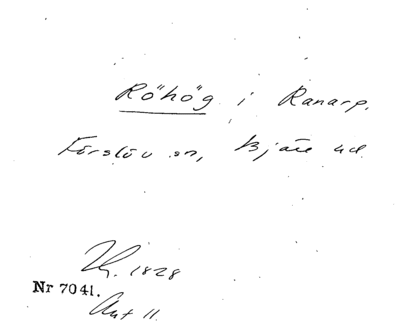 Röhög i Ranarp.
Förslöv sn, Bjäre hd
1828
Nr 7041.
Ant 11.